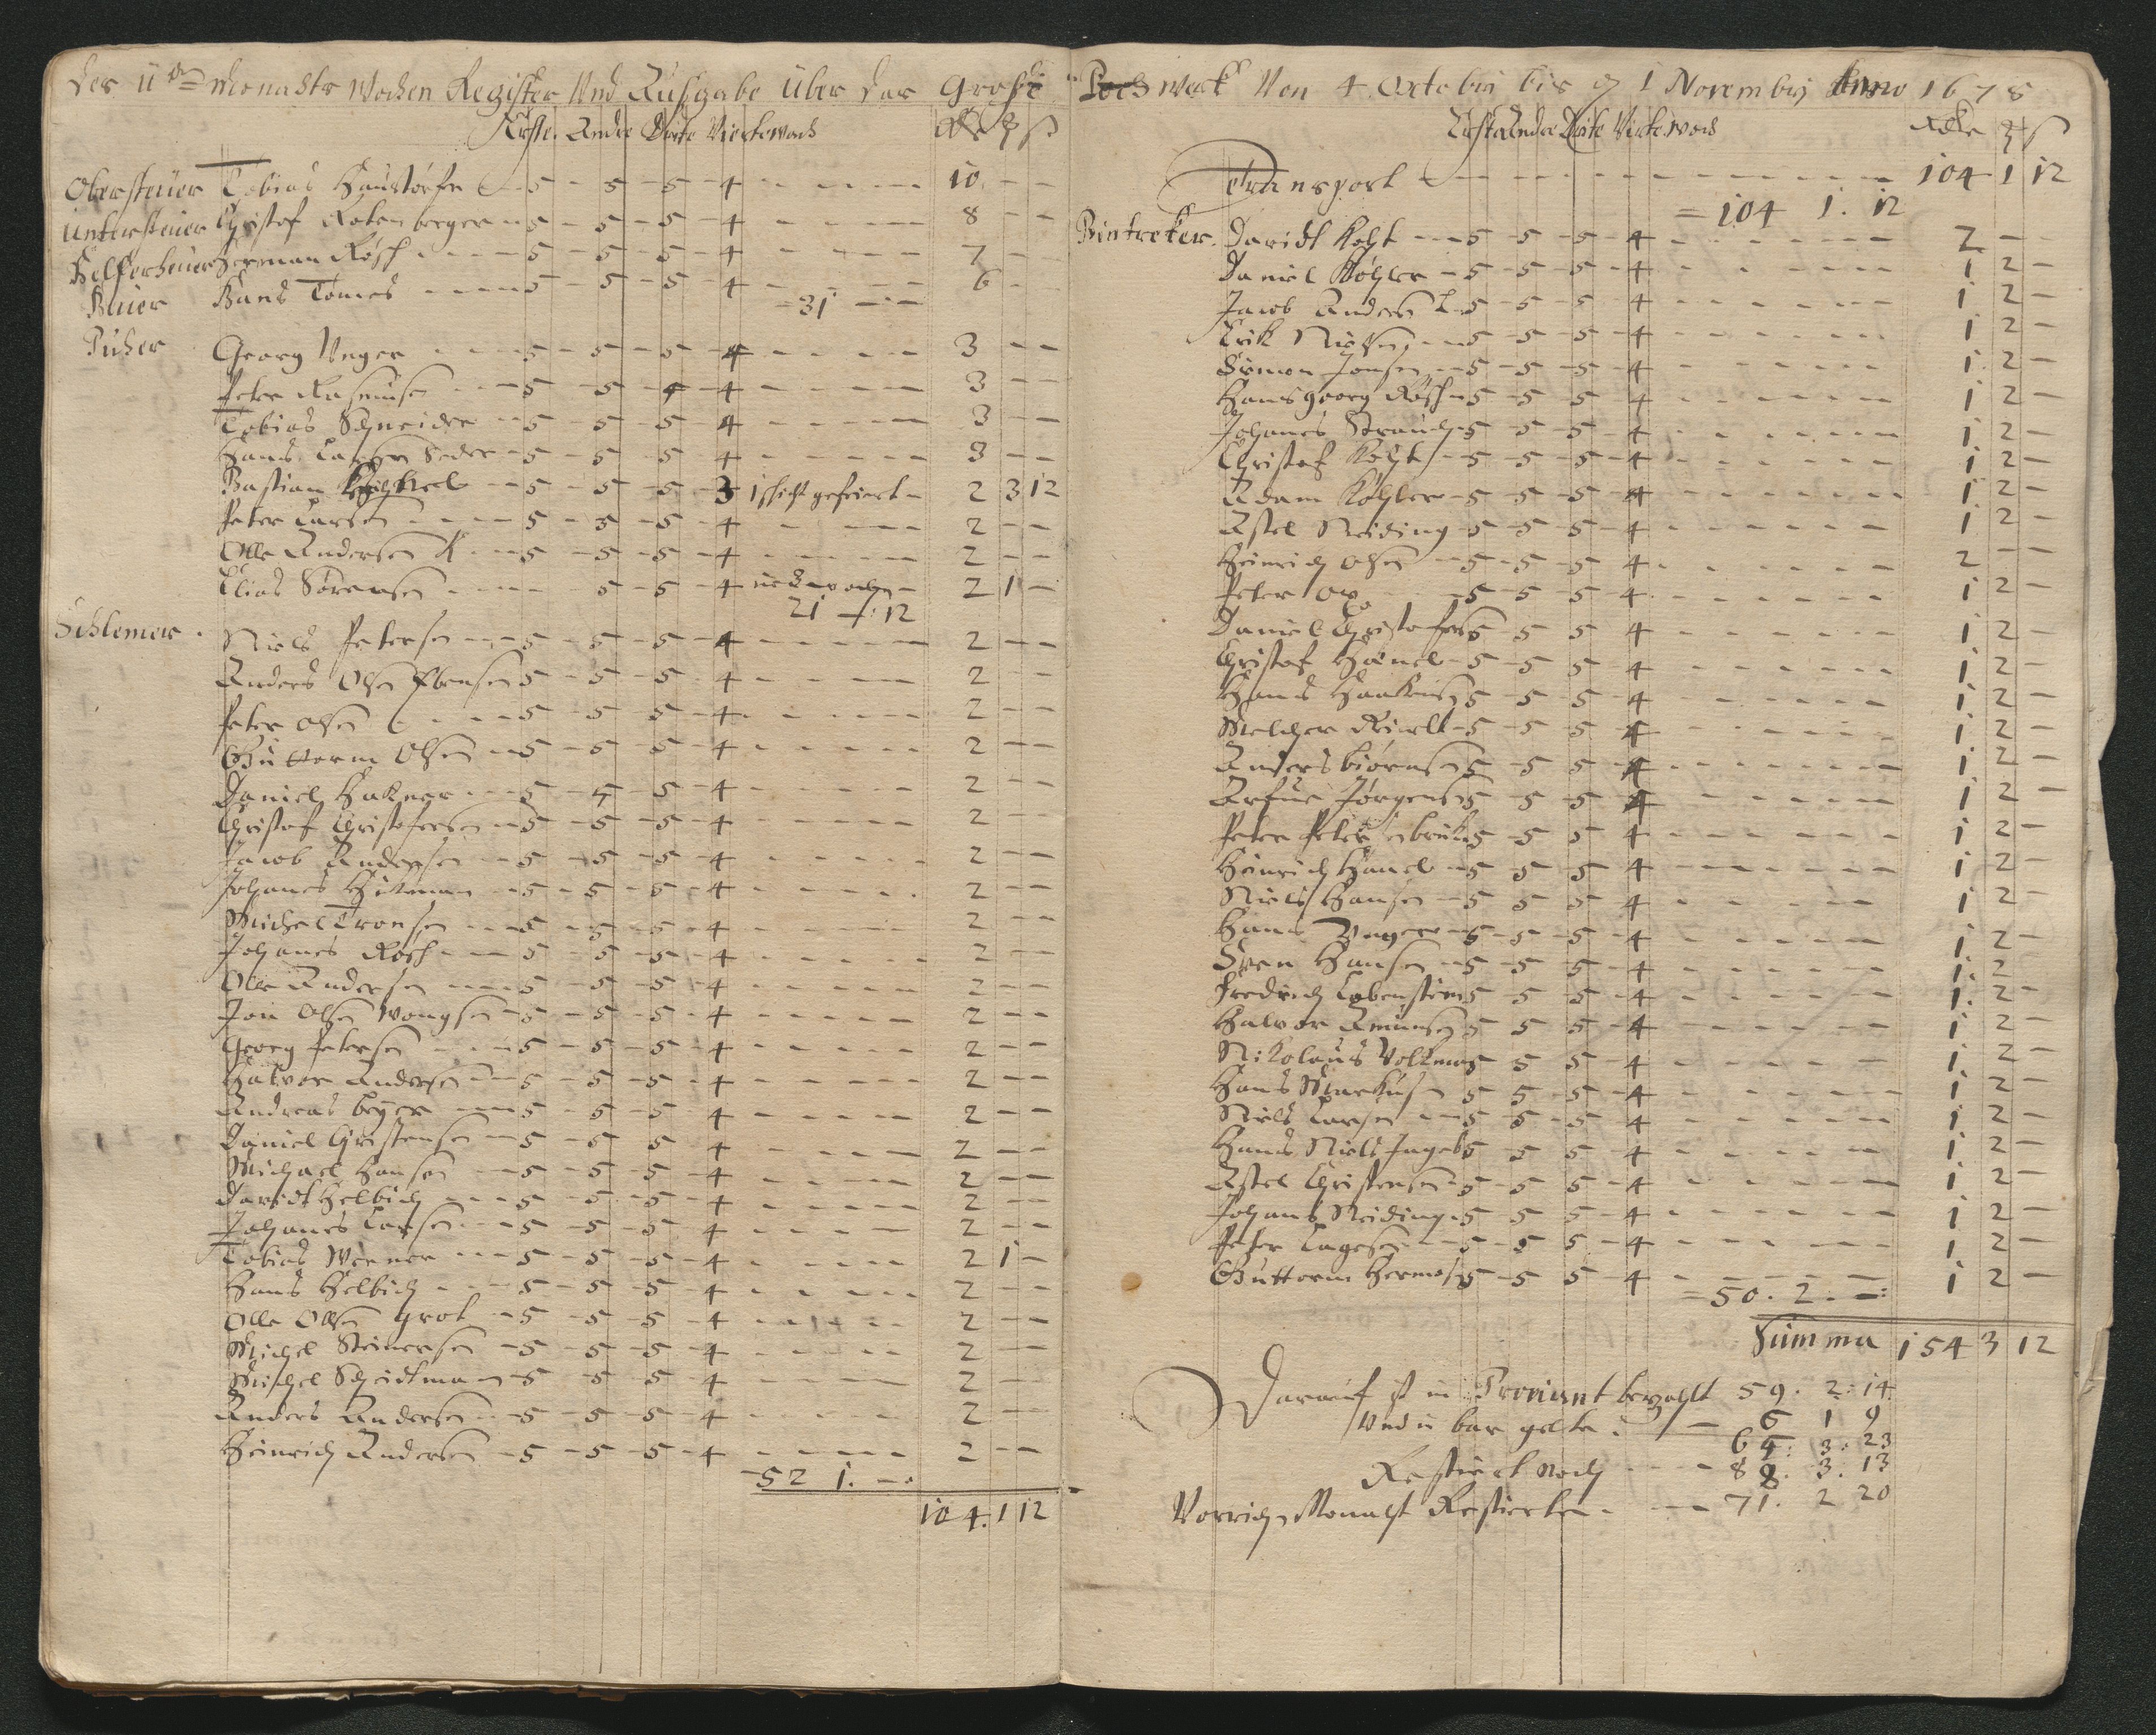 Der 11te Monadts Wochen Register Und Außgabe Über das Große
Erste Andre Drite Vierte woch Rdr ȝ ß
Obersteuer Tobias Haustörfer 5 - 5 - 5 - 4 - - - 10 - -
Untersteuer Christof Rotenberger - 5 - 5 - 5 - 4 - - - 8 - -
Herman Rösch - 5 - 5 - 5 - 4 - - - 7 - -
Hans Tomes - 5 - 5 - 5 - 4 - - - 6 - -
- 31 - -
Pucher Georg Unger - 5 - 5 - 5 - 4 - - - 3 - -
Peter Rasmusen - 5 - 5 - 4 - 4 - - - 3 - -
Tobias Schneider - 5 - 5 - 5 - 4 - - - 3 - -
Hans Larsen - 5 - 5 - 5 - 4 - - - 3 - -
Bastian - 5 - 5 - 5 - 3 1 schicht gefeiert - 2 3 12
Peter Larsen - 5 - 5 - 5 - 4 - - - 2 - -
Olle Andersen K - 5 - 5 - 5 - 4 - - - 2 - -
Elias Sörensen - - 5 - 5 - 4 - 2 1 -
21 - : 12
Schlemer Niels Petersen - 5 - 5 - 5 - 4 - - - 2 - -
Anders Olsen Ebensen 5 - 5 - 5 - 4 - - - 2 - -
Peter Olsen - 5 - 5 - 5 - 4 - - - 2 - -
Guttorm Olsen - 5 - 5 - 5 - 4 - - - 2 - -
Daniel Hakner - 5 - 5 - 5 - 4 - - - 2 - -
Christof Christofersen - 5 - 5 - 5 - 4 - - - 2 - -
Jacob Andersen - 5 - 5 - 5 - 4 - - - 2 - -
Johanes Hütman - 5 - 5 - 5 - 4 - - - 2 - -
Michel Tronsen - 5 - 5 - 5 - 4 - - - 2 - -
Johanes Rösch - 5 - 5 - 5 - 4 - - - 2 - -
Olle Andersen - 5 - 5 - 5 - 4 - - - 2 - -
Jon Olsen Wongsen - 5 - 5 - 5 - 4 - - - 2 - -
Georg Petersen - 5 - 5 - 5 - 4 - - - 2 - -
Halvor Andersen - 5 - 5 - 5 - 4 - - - 2 - -
Andreas Beyer - 5 - 5 - 5 - 4 - - - 2 - -
Daniel Christensen - 5 - 5 5 - 4 - - - 2 - -
Michael Hansen - 5 - 5 - 5 - 4 - - - 2 - -
Davidt Helbich - 5 - 5 - 5 - 4 - - - 2 - -
Johanes Larsen - 5 - 5 - 5 - 4 - - - 2 - -
Tobias Werner - 5 - 5 - 5 - 4 - - - 2 1 -
Hans Helbich - 5 - 5 - 5 - 4 - - - 2 - -
Olle Olsen Grot - 5 - 5 - 5 - 4 - - - 2 - -
Michel Steinersen - 5 - 5 - 5 - 4 - - - 2 - -
Michel Scheidtman - 5 - 5 - 5 - 4 - - - 2 - -
Anders Andersen - 5 - 5 - 5 - 4 - - - 2 - -
Heinrich Andersen - 5 - 5 - 5 - 4 - - - 2 - -
- 52 1. - .
104. 1 12
Poch Werk Von 4 Octobrij bis d 1 Novembrij Anno 1678
Erste Andre Drite Virte woch Rdr ȝ ß
Transport - - - 104 1 12
= 104 1. 12
Davidt Voht - 5 - 5 - 5 - 4 - - - 2 -
Daniel Köhler - 5 - 5 - 5 - 4 - - - 1 2 -
Jacob Andersen L - 5 - 5 - 5 - 4 - - - 1 2 -
Erik Nielsen - 5 - 5 - 5 - 4 - - - 1 2 -
Simon Jonsen - 5 - 5 - 5 - 4 - - - 1 2 -
Hans Georg Rösch - 5 - 5 5 - 4 - - - 1 2 -
Johanes Strauch - 5 - 5 5 - 4 - - - 1 2 -
Christof Voht - 5 - 5 - 5 - 4 - - - 1 2 -
Adam Köhler - 5 - 5 - 5 - 4 - - - 1 2 -
Axel Neiding - 5 - 5 - 5 - 4 - - - 1 2 -
Heinrich Olsen - 5 - 5 - 5 - 4 - - - 2 - -
Peter - 5 - 5 - 5 - 4 - - - 1 2 -
Daniel Christofersen 5 - 5 5 - 4 - - - 1 2 -
Christof Hänel - 5 - 5 - 5 - 4 - - - 1 2 -
Hans Haakensen 5 - 5 5 - 4 - - - 1 2 -
Melcher - 5 - 5 5 - 4 - - - 1 2 -
Anders Biörnsen 5 - 5 5 - 4 - - - 1 2 -
Jörgensen 5 - 5 5 - 4 - - - 1 2 -
Peter Petersen 5 - 5 5 - 4 - - - 1 2 -
Heinrich Hänel - 5 - 5 5 - 4 - - - 1 2 -
Niels Hansen - 5 5 5 - 4 - - - 1 2 -
Hans Unger - 5 - 5 - 5 - 4 - - - 1 2 -
Sven Hansen - 5 - 5 - 5 - 4 - - - 1 2 -
Fredrich Lobenstein 5 - 5 - 5 - 4 - - - 1. 2 -
Halvor Amunsen 5 - 5 5 - 4 - - - 1 2 -
Nikolaus Volkmar 5 5 5 - 4 - - - 1 2 -
Hans Markusen 5 5 - 5 - 4 - - - 1 2 -
Niels Larsen - 5 - 5 - 5 - 4 - - - 1 2 -
Hans Niels 5 5 5 - 4 - - - 1 2 -
Axel Christensen - 5 - 5 5 - 4 - - - 1 2
Johans Neiding - 5 - 5 5 - 4 - - - 1 2 -
Peter Lagesen - 5 - 5 5 - 4 - - - 1 2 -
Guttorm Hermosen 5 - 5 5 - 4 - - - 1 2 -
= 50. 2. - :
Summa 154 3 12
Darauf ist in Proviant bezahlt 59. 2: 14
Und in bar gelte - 6 1 9
3: 23
Restiert noch - 88. 3. 13
Vorrich Monadt Restierten - 71. 2 20